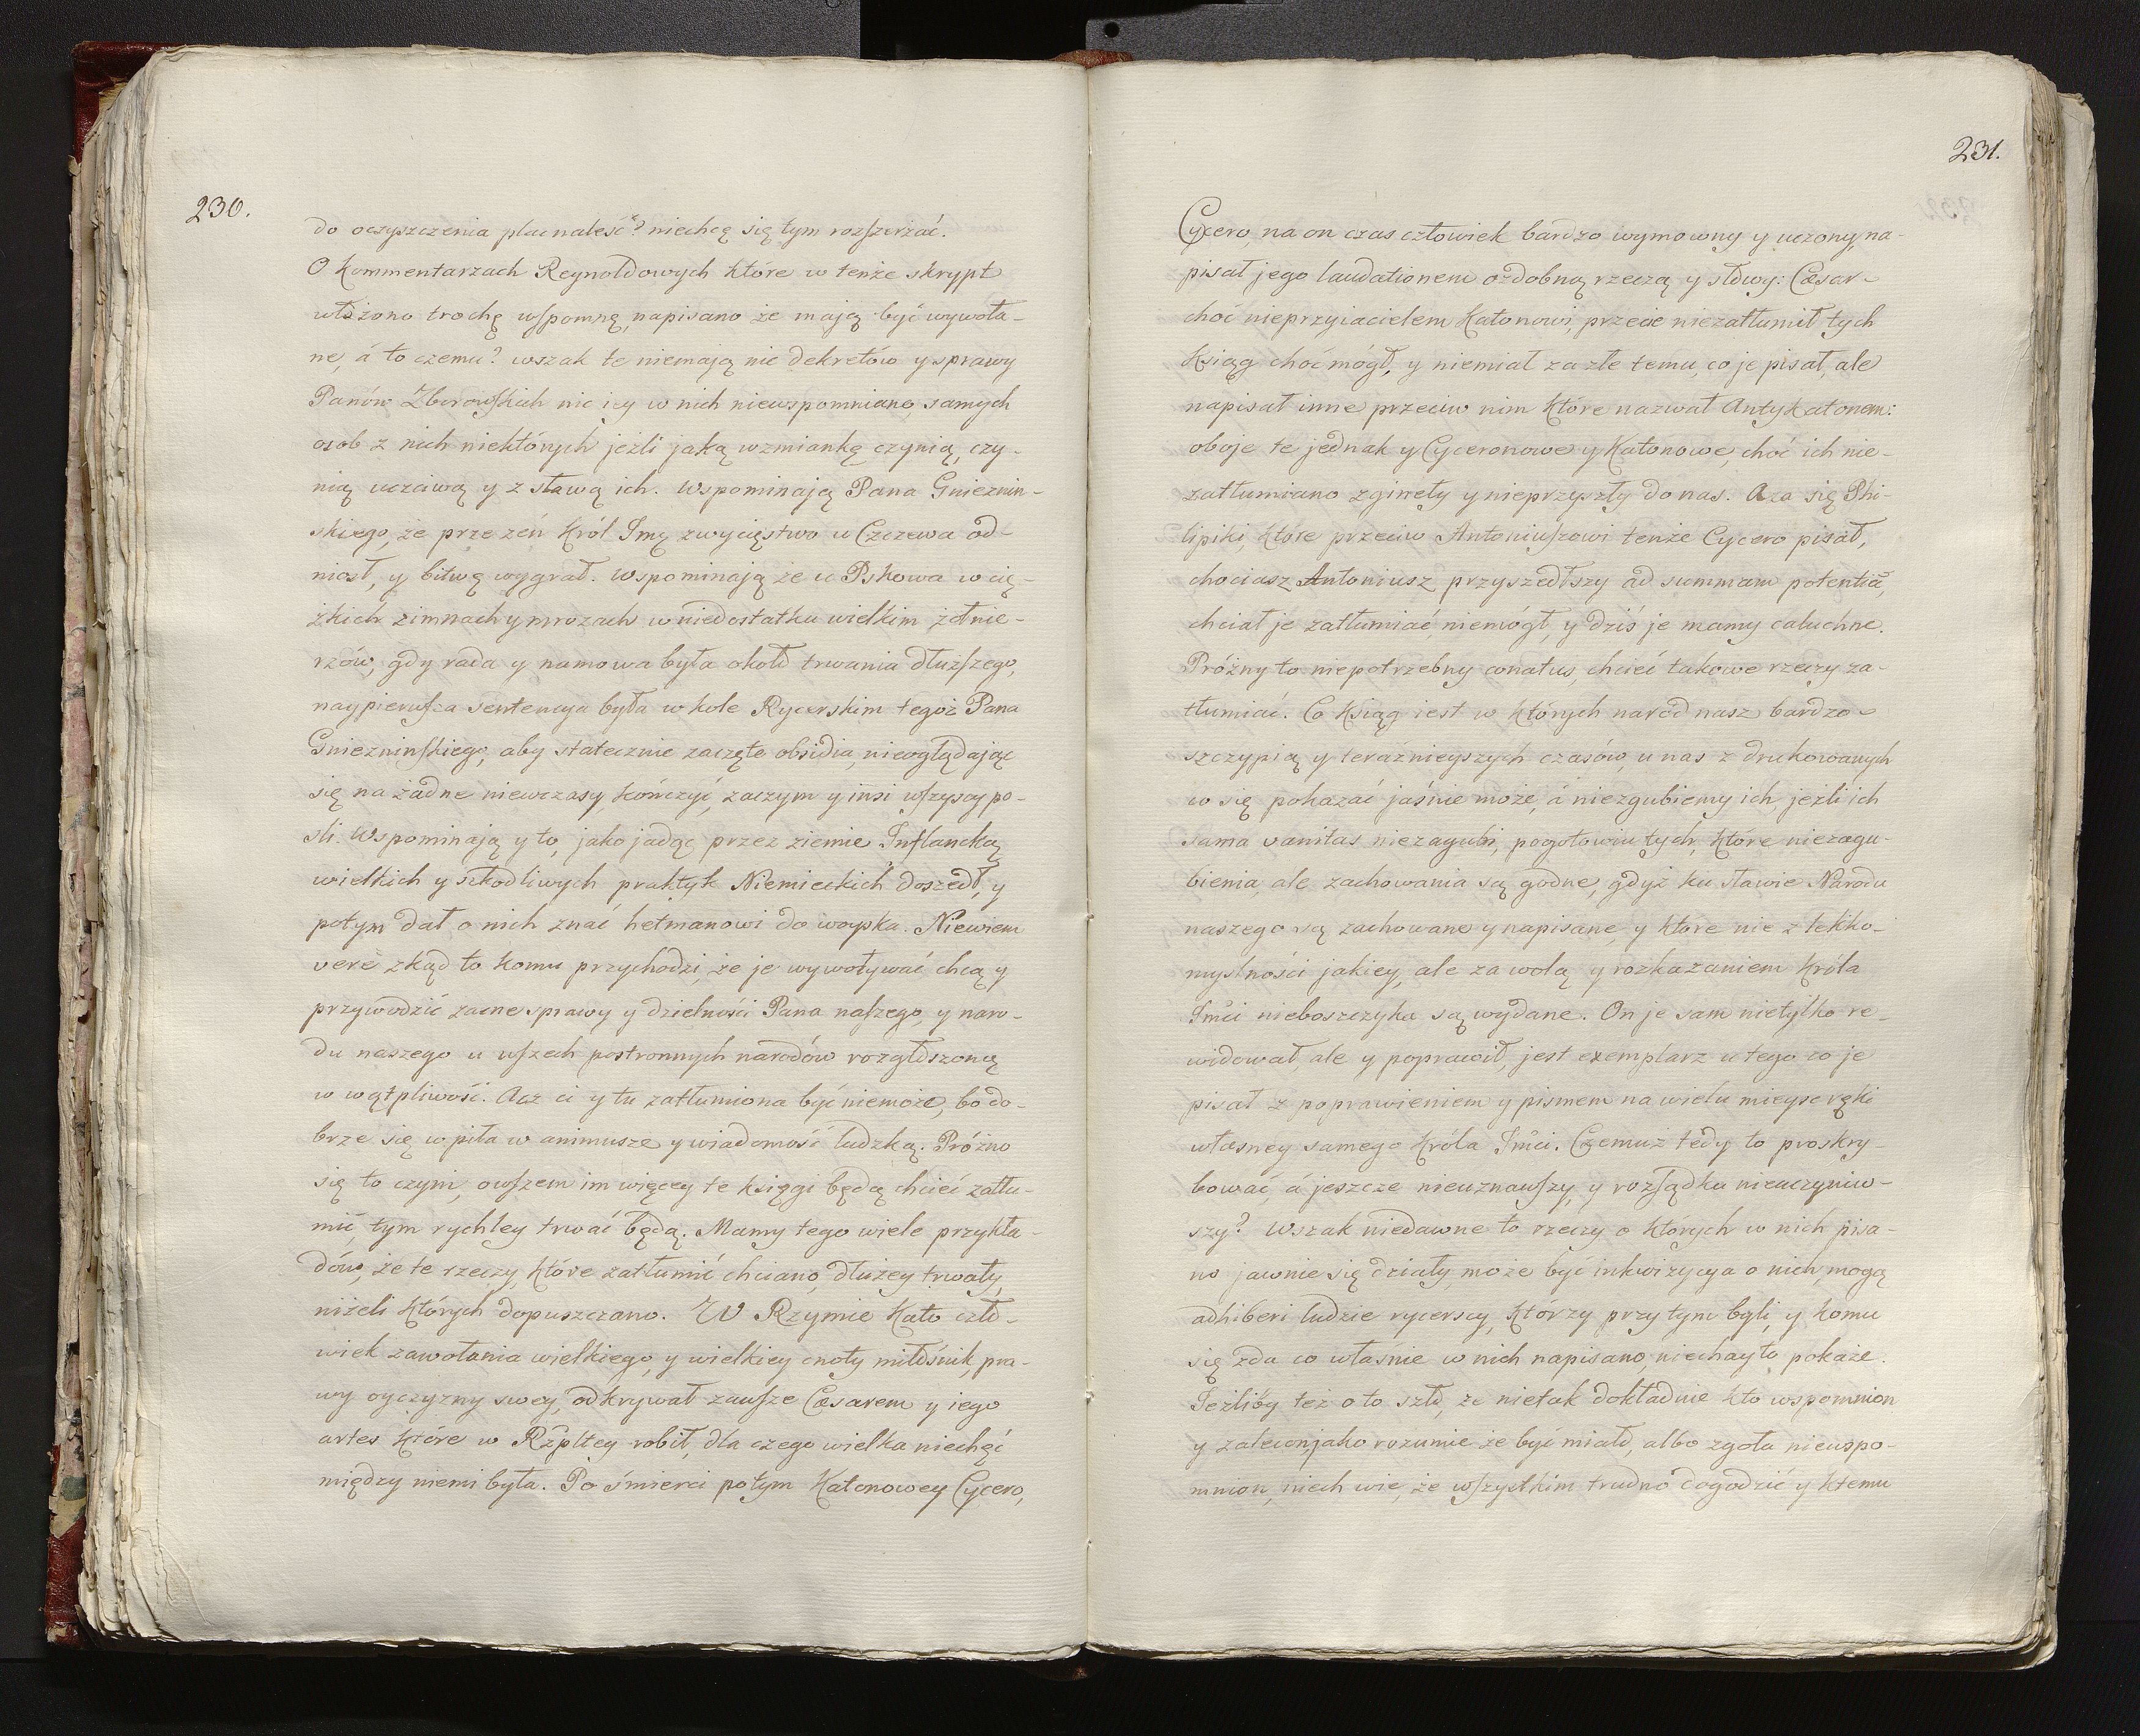 230.
do oczyszczenia plac naleść? niechcę się tym rozſzerzać.
O kommentarzach Reynoldowych które w tenże skrypt
włożono trochę wſpomnę, napisano że mają być wywoła-
ne, á to czemu? wszak te niemają nic dekretów y sprawy
Panów Zborowſkich nic icy w nich niewspomniano, samych
osob z nich niektórych jeżli jaką wzmiankę czynią, czy-
nią uczciwą y z sławą ich. Wspominają Pana Gnieznin-
skiego, że przezeń Król Jmę zwycięstwo u Czczewa od-
niosł, y bitwę wygrał. Wspominają że u Pskowa w cię-
żkich zimnach y mrozach w niedostatku wielkim żołnie-
rzów, gdy rada y namowa była około trwania dłużſzego,
naypierwſza sentencya była w kole Rycerskim tegoż Pana
Gniezninſkiego, aby statecznie zaczęte obsidia, nieoglądając
się na żadne niewczasy, kończyć, zaczym y insi wſzyscy po-
śli. Wspominają y to, jako jadąc przez ziemie Inflancką
wielkich y szkodliwych praktyk Niemieckich doszedł, y
potym dał o nich znać hetmanowi do woyska. Niewiem
vere zkąd to komu przychodzi, że je wywoływać chcą y
przywodzić zacne sprawy y dzielności Pana naſzego, y naro-
du naszego u wſzech postronnych narodów rozgłoszoną
w wątpliwość. Acz ci y tu zatłumiona być niemoże, bo do-
brze się wpiła w animusze y wiadomość ludzką. Próżno
się to czyni, owſzem im więcey te księgi będą chcieć zatłu-
mić, tym rychley trwać będą. Mamy tego wiele przykła-
dów, że te rzeczy które zatłumić chciano, dłużey trwały,
niżeli których dopuszczano. W Rzymie Kato czło-
wiek zawołania wielkiego, y wielkiey cnoty miłośnik, pra-
wy oyczyzny swey, odkrywał zawſze Cæsarem y iego
artes które w Rzpltey robił, dla czego wielka niechęć
między niemi była. Po śmierci potym Katonowey Cycero,
231.
Cycero, na on czas człowiek bardzo wymowny y uczony, na-
pisał jego laudationem ozdobną rzeczą y słowy: Cæsar
choć nieprzyiacielem Katonowi, przecie niezatłumił tych
Ksiąg choć mógł, y niemiał za złe temu, co je pisał, ale
napisał inne przeciw nim które nazwał Antykatonem:
oboje te jednak y Cyceronowe y Katonowe, choć ich nie-
zatłumiano zginęły y nieprzyszły do nas. Aza się Phi-
lipiki, które przeciw Antoniuſzowi tenże Cycero pisał,
chociasz Antoniusz przyszedłszy ad summam potentiã,
chciał je zatłumiać, niemógł, y dziś je mamy caluchne.
Próżny to niepotrzebny conatus, chcieć takowe rzeczy za-
tłumiać. Co Ksiąg iest w których naród nasz bardzo
szczypią y teraźnieyszych czasów, u nas z drukowanych
co się pokazać jaśnie może, á niezgubiemy ich, jeżli ich
sama vanitas niezagubi, pogotowiu tych, które niezagu-
bienia, ale zachowania są godne, gdyż ku sławie Narodu
naszego są zachowane y napisane, y które nie z lekko-
myslności jakiey, ale za wolą y rozkazaniem Króla
Jmći nieboszczyka są wydane. On je sam nietylko re-
widował, ale y poprawił, jest exemplarz u tego co je
pisał z poprawieniem y pismem na wielu mieysc ręki
własney samego Króla Jmći. Czemuż tedy to proskry-
bować, á jeszcze nieuznawſzy, y rozſądku nieuczyniw-
szy? Wszak niedawne to rzeczy o których w nich pisa-
no jawnie się działy, może być inkwizycya o nich, mogą
adhiberi ludzie rycerscy, którzy przy tym byli, y komu
się zda co właśnie w nich napisano, niechay to pokaże.
Jeżliby też o to szło, że nietak dokładnie kto wspomnion
y zalecon, jako rozumie że być miało, albo zgoła niewspo-
mnion, niech wie, że wſzystkim trudno dogodzić y ktemu